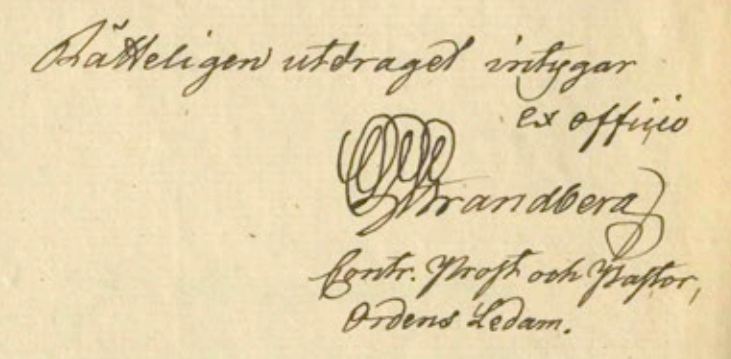 Rätteligen utdraget intygar
ex officio
Strandberg
Contr. Prost och Pastor,
Ordens Ledam.